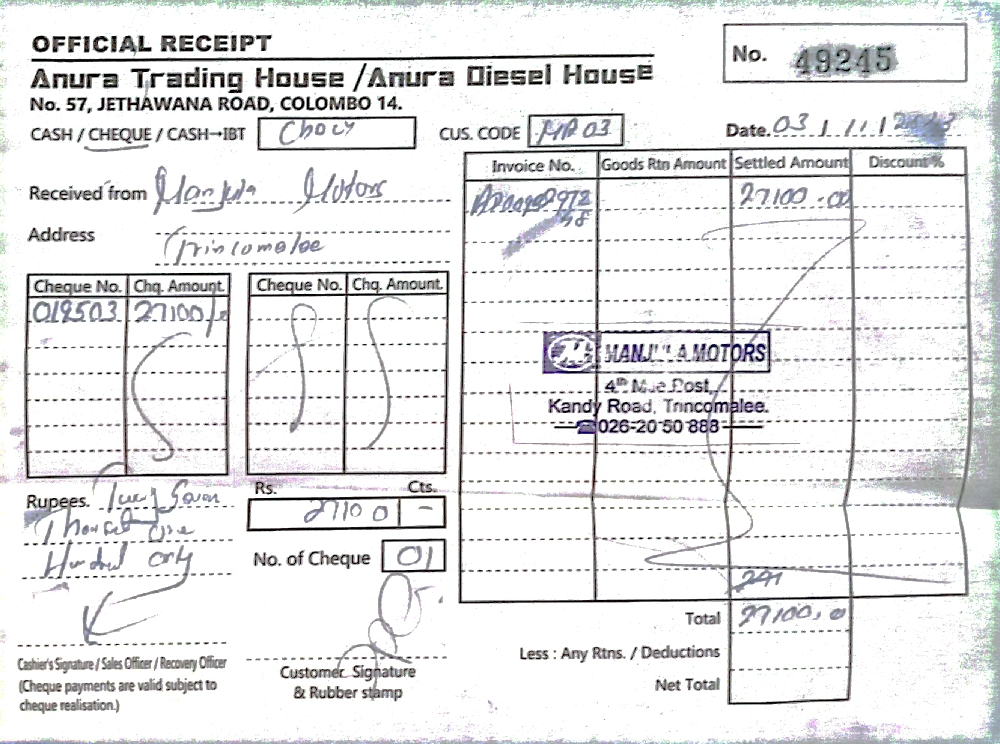 OFFICIAL RECEIPT
No. 49245
Anura Trading House / Anura Diesel House
No. 57, JETHAWANA ROAD, COLOMBO 14.
CASH / CHEQUE / CASH→IBT
CUS. CODE MP 03
Date. 03 / 11 /
Received from Manjula Motors
Address Trincomalee
Cheque No. Chq. Amount.
019503 27100/-
Cheque No. Chq. Amount.
Invoice No. Goods Rtn Amount Settled Amount Discount %
27100.00
MANJULA MOTORS
4th Mile Post,
Kandy Road, Trincomalee.
026-20 50 888
Rupees. Twenty Seven
Thousand one
Hundred only
Rs. Cts.
27100 -
No. of Cheque 01
Total 27100.00
Less : Any Rtns. / Deductions
Net Total
Cashier's Signature / Sales Officer / Recovery Officer
(Cheque payments are valid subject to
cheque realisation.)
Customer Signature
& Rubber stamp